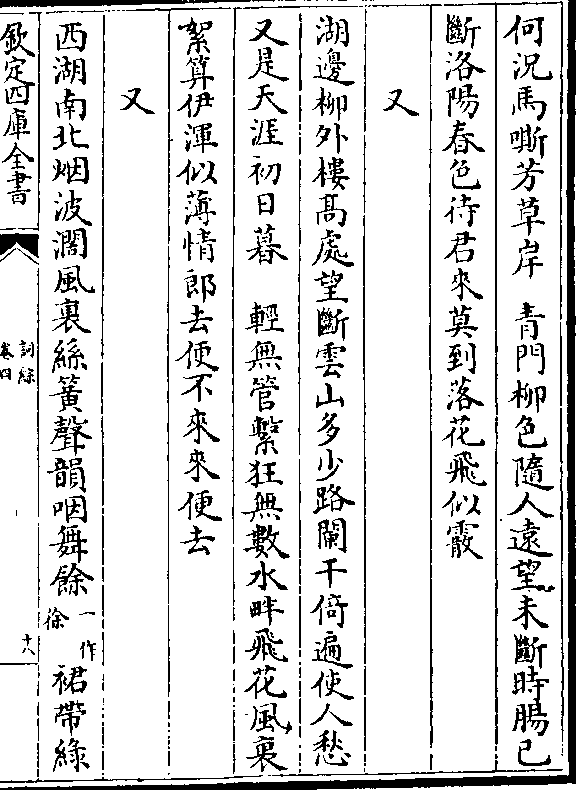 何況馬嘶芳草岸　青門柳色隨人遠望未斷時腸已
斷洛陽春色待君來莫到落花飛似霰
又
湖邊柳外樓髙處望斷雲山多少路闌干倚遍使人愁
又是天涯初日暮　輕無管繫狂無數水畔飛花風裏
絮算伊渾似薄情郎去便不來來便去
又
西湖南北烟波濶風裏絲簧聲韻咽舞餘一作徐裙帶綠
欽定四庫全書
詞綜
卷四
十八